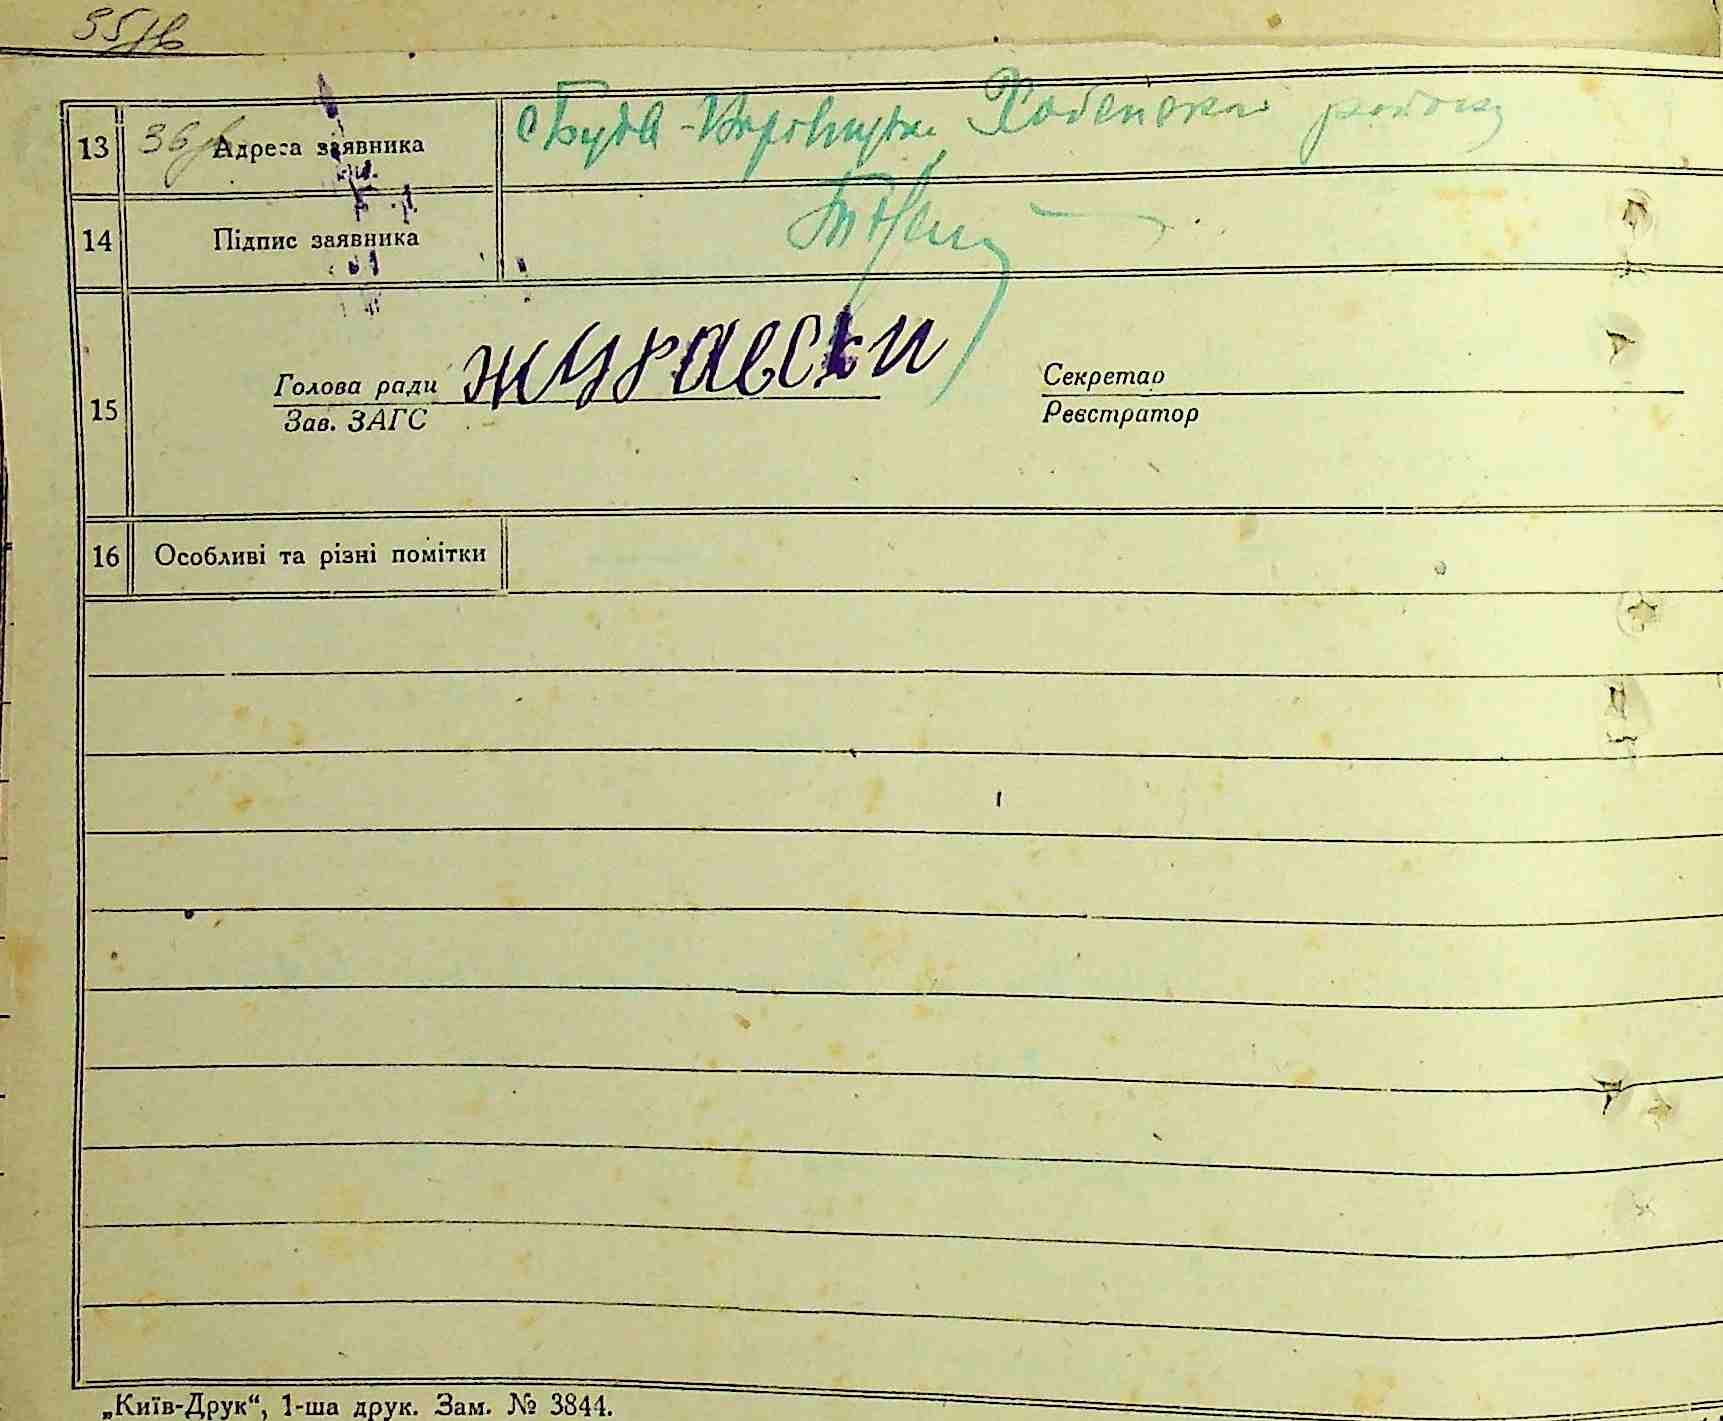 55зв
13 36зв Адреса заявника с Буда-Варовицька Хабенского району
14 Підпис заявника
15 Голова ради Журавски Секретар
Зав. ЗАГС Реєстратор
16 Особливі та різні помітки
„Київ-Друк“, 1-ша друк. Зам. № 3844.